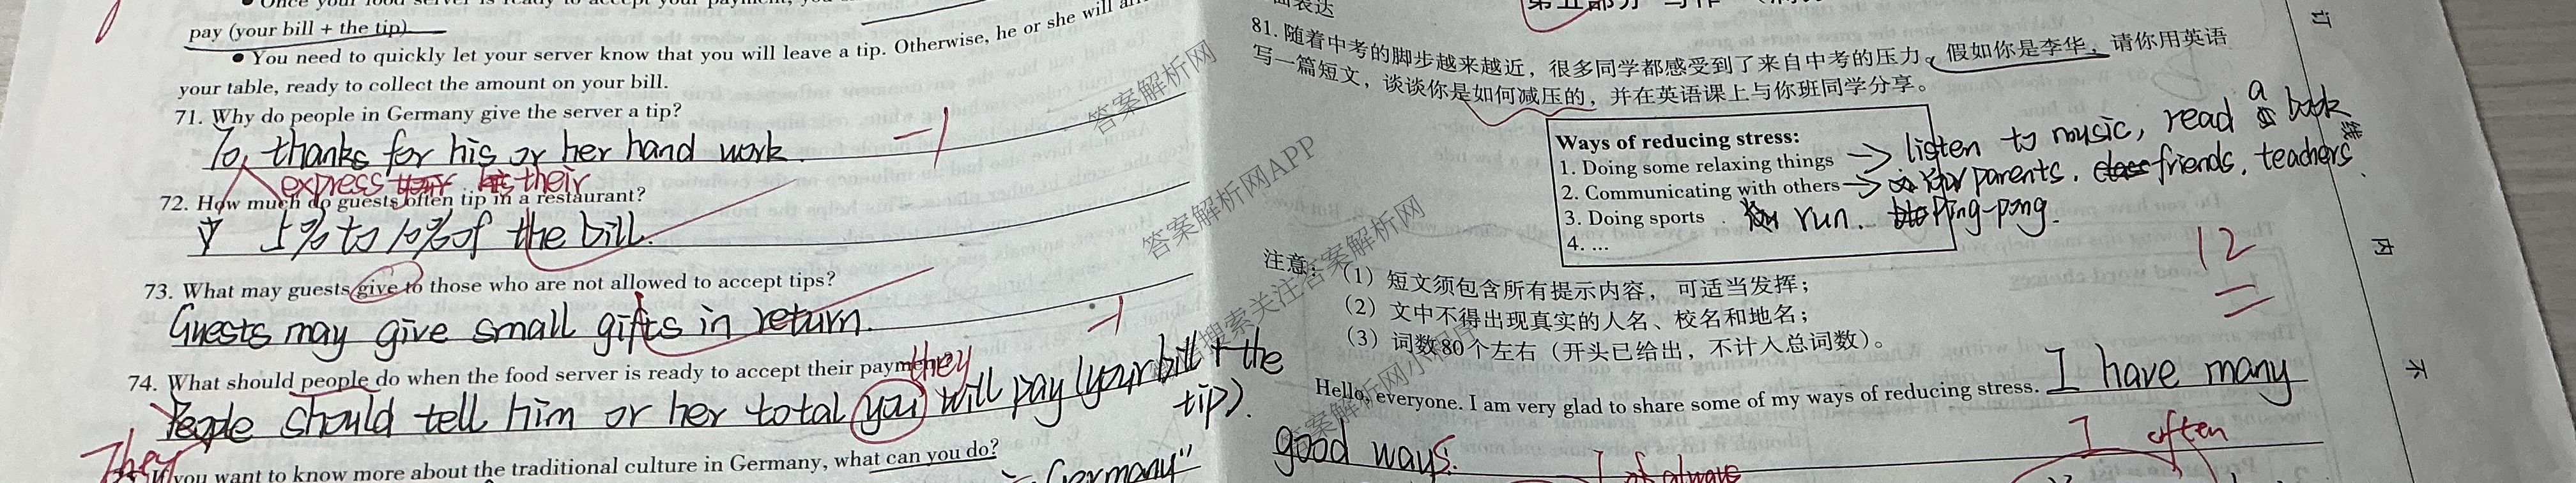 pay (your bill + the tip).
● You need to quickly let your server know that you will leave a tip. Otherwise, he or she will
your table, ready to collect the amount on your bill.
71. Why do people in Germany give the server a tip?
To thanks for his or her hand work.
-1
express their
72. How much do guests often tip in a restaurant?
5% to 10% of the bill.
73. What may guests give to those who are not allowed to accept tips?
Guests may give small gifts in return.
-1
74. What should people do when the food server is ready to accept their payment?
they
People should tell him or her total you will pay (your bill + the
tip).
They
If you want to know more about the traditional culture in Germany, what can you do?
Germany"
面表达
81. 随着中考的脚步越来越近，很多同学都感受到了来自中考的压力。假如你是李华，请你用英语
写一篇短文，谈谈你是如何减压的，并在英语课上与你班同学分享。
Ways of reducing stress:
1. Doing some relaxing things → listen to music, read a book
2. Communicating with others → parents. friends. teachers
3. Doing sports run. Ping-pong.
4. ...
12
注意：(1) 短文须包含所有提示内容，可适当发挥；
(2) 文中不得出现真实的人名、校名和地名；
(3) 词数80个左右（开头已给出，不计入总词数）。
Hello, everyone. I am very glad to share some of my ways of reducing stress. I have many
good ways.
I often
always
订
线
内
不
答案解析网
答案解析网APP
搜索关注答案解析网
答案解析网小程序